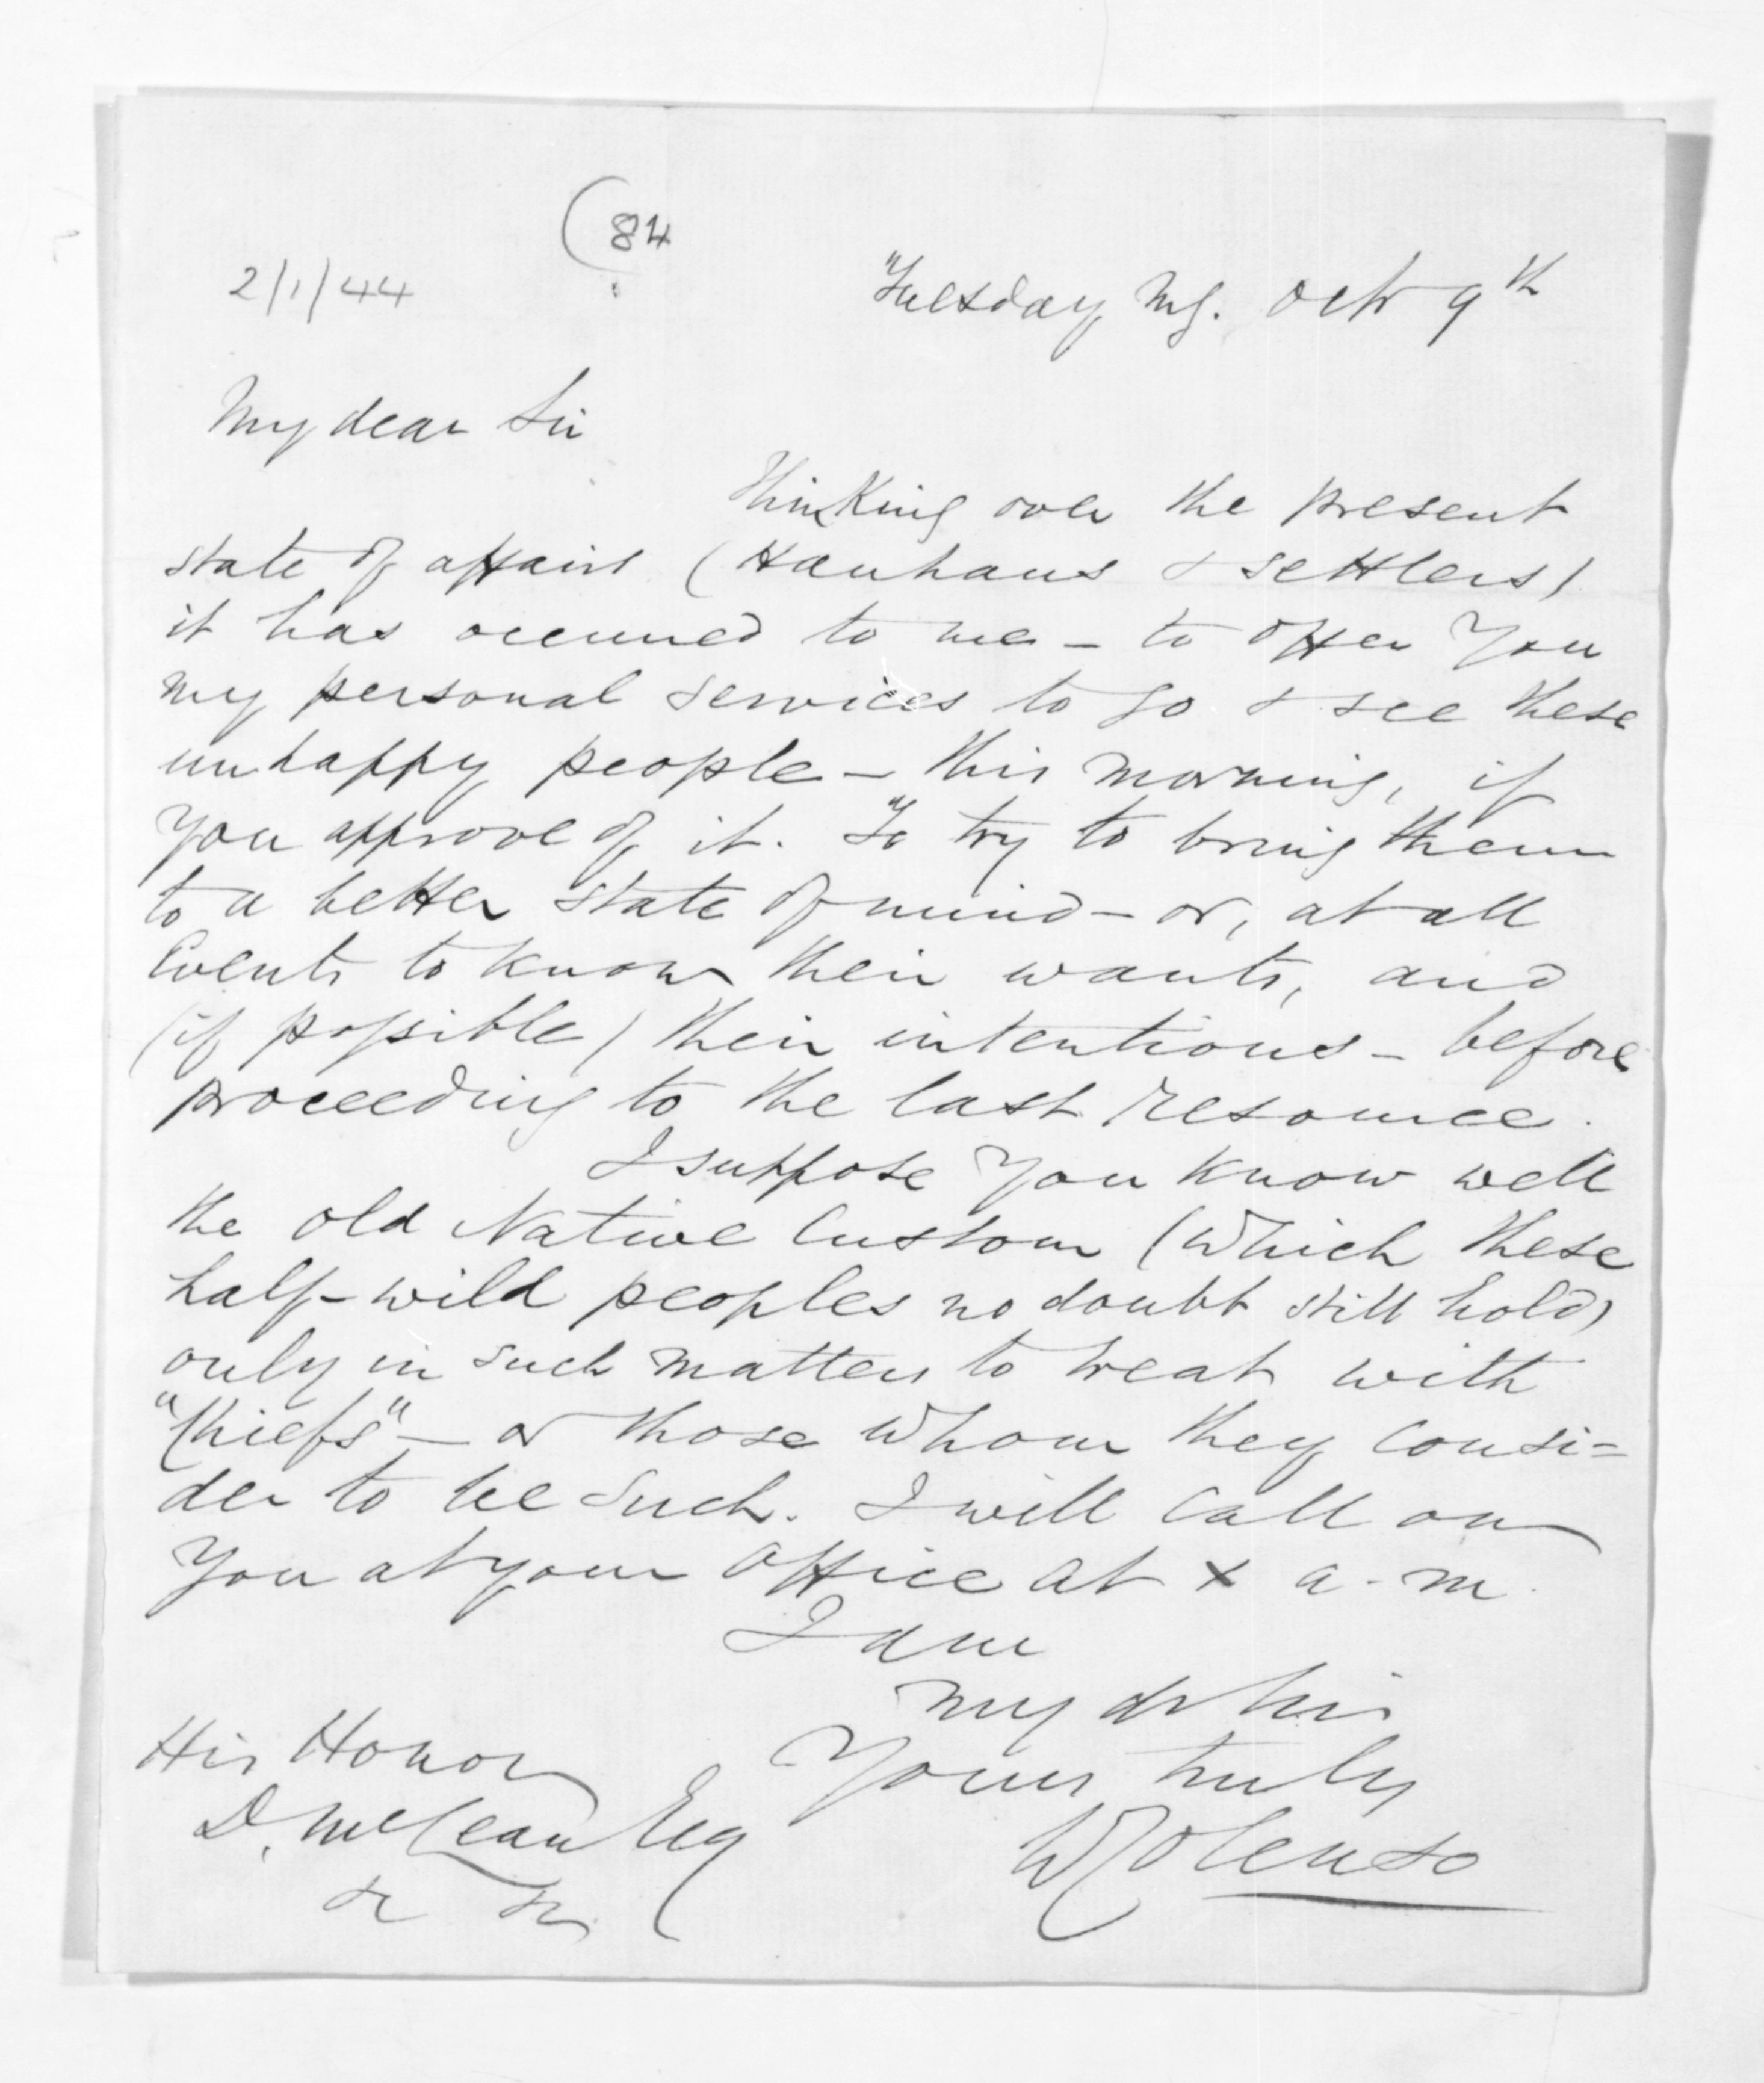 (84
2/1/44
Tuesday Mg. Octr 9th
My dear Sir
Thinking over the present
state of affairs (Hauhaus & settlers)
it has occurred to me – to offer you
my personal services to go & see these
unhappy people – this morning, if
you approve of it. To try to bring them
to a better state of mind – or, at all
Events to know their wants, and
(if possible) their intentions – before
proceeding to the last resource.
I suppose you know well
the old Native Custom (which these
half-wild peoples no doubt still hold)
only in such matters to treat with
"Chiefs" – or those whom they consi=
der to be such. I will call on
you at your office at X a.m.
I am
My dr Sir
Yours truly
W Colenso
His Honor
D. McLean Esq
&c &c